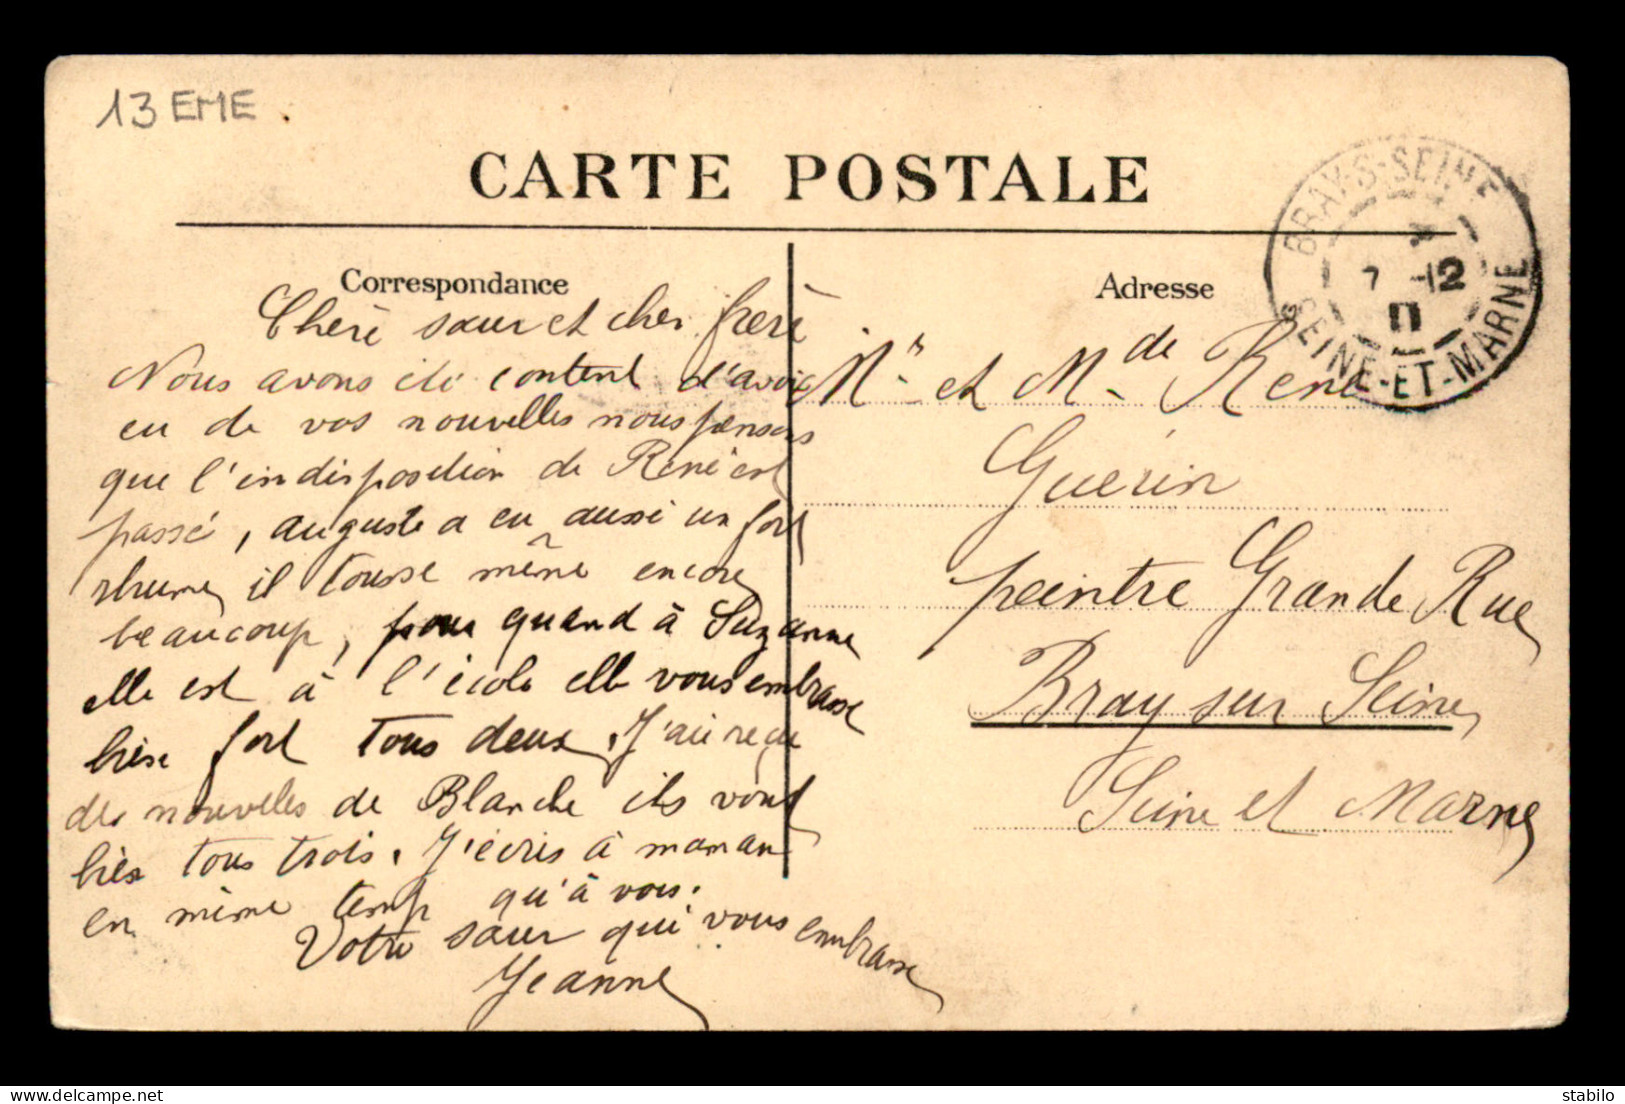 13 EME .
CARTE POSTALE
Correspondance
Chère sœur et cher frère
Nous avons été content d'avoir
eu de vos nouvelles nous pensons
que l'indisposition de René est
passé, auguste a eu aussi un fort
rhume, il tousse même encore
beaucoup, pour quand à Suzanne
elle est à l'école elle vous embrasse
bien fort tous deux. J'ai reçu
des nouvelles de Blanche ils vont
bien tous trois. J'écris à maman
en même temp qu'à vous.
Votre sœur qui vous embrasse
Jeanne
Adresse
Mr et Mde René
Guerin
peintre Grande Rue
Bray sur Seine
Seine et Marne
BRAY-S-SEINE
7 -12
11
SEINE-ET-MARNE
stabilo